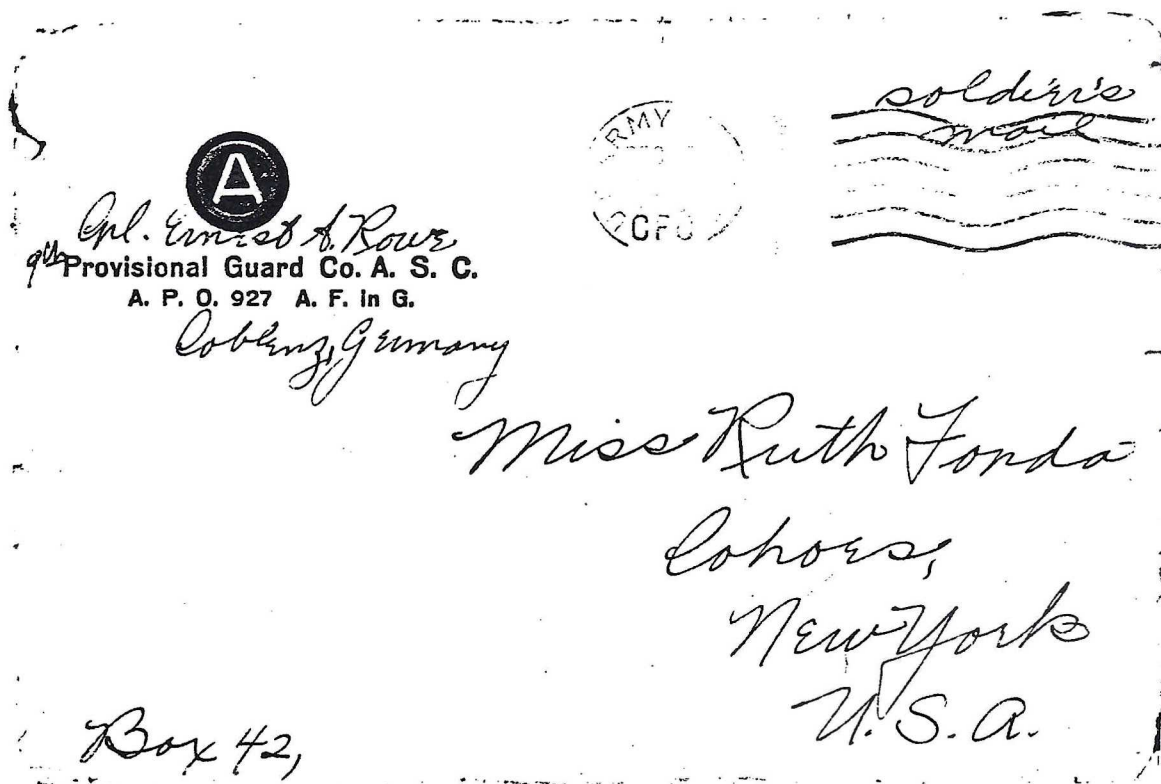 soldier's
mail
ARMY
A
Cpl. Ernest A. Rowe
9th Provisional Guard Co. A. S. C.
A. P. O. 927 A. F. in G.
Coblenz, Germany
Miss Ruth Fonda
Cohoes,
New York
U. S. A.
Box 42,